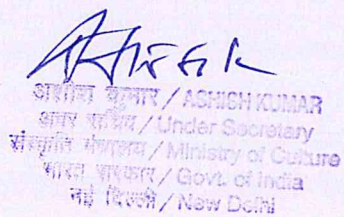 अशीष कुमार / ASHISH KUMAR
अवर सचिव / Under Secretary
संस्कृति मंत्रालय / Ministry of Culture
भारत सरकार / Govt. of India
नई दिल्ली / New Delhi